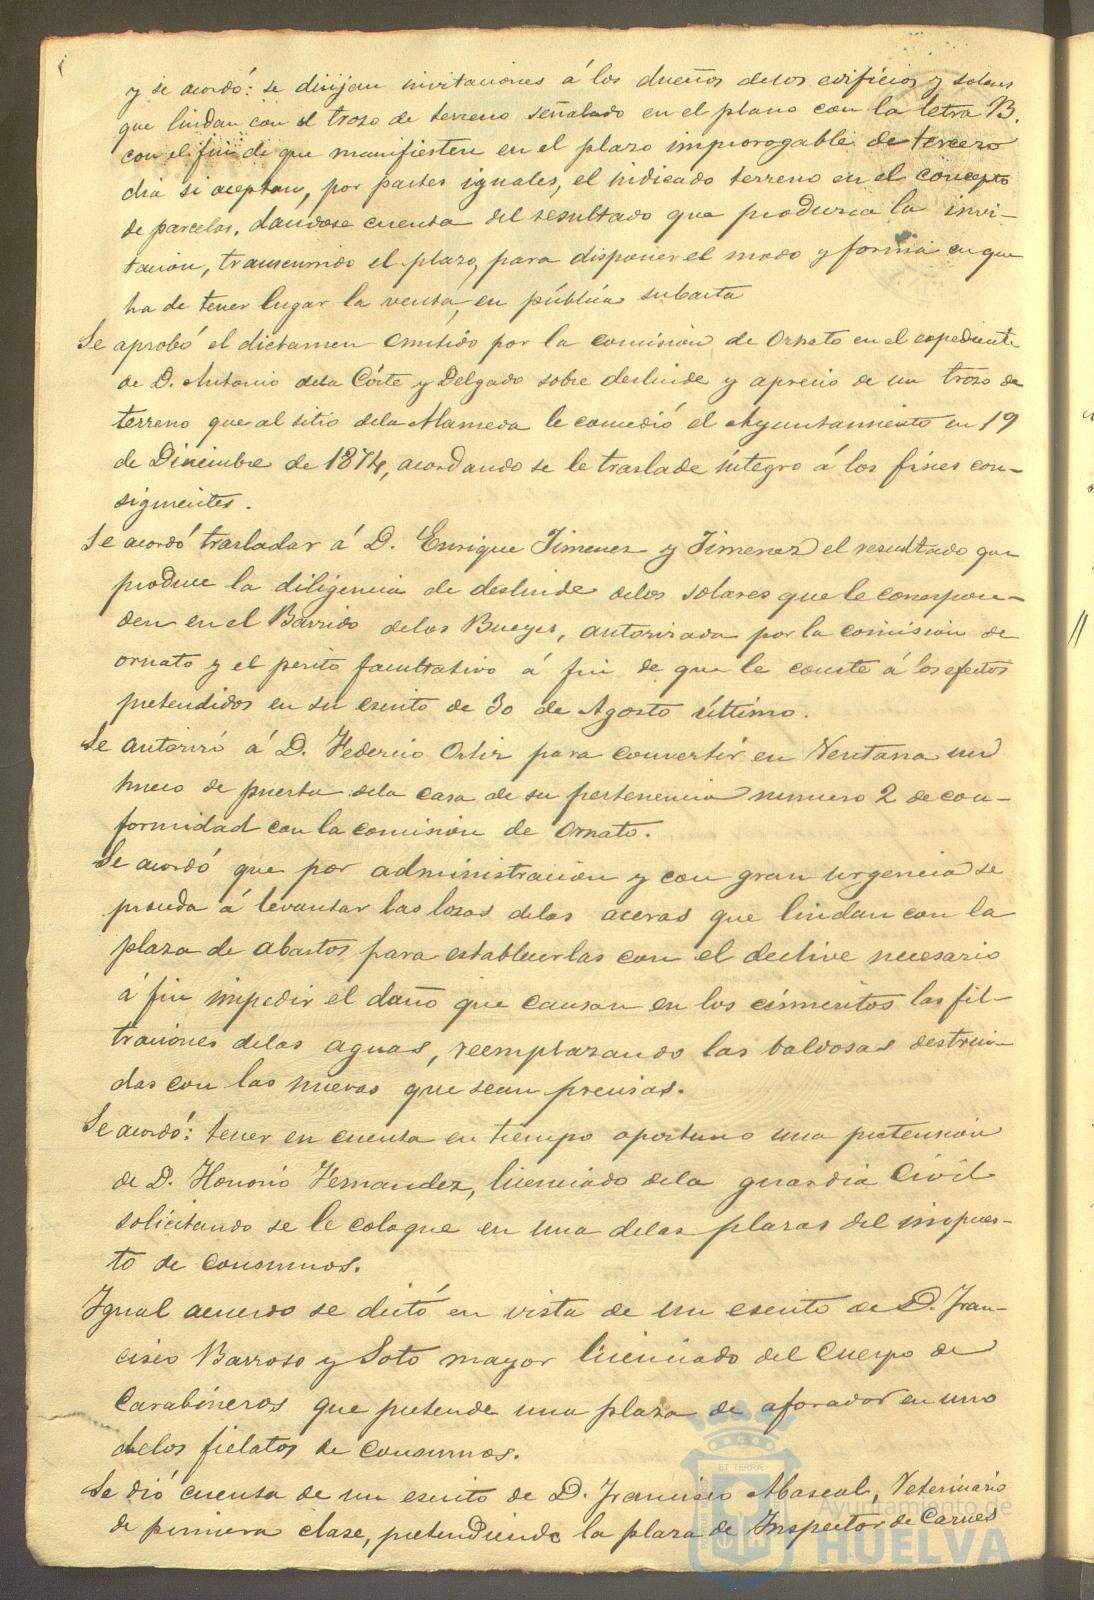 y se acordó: se dirijan invitaciones á los dueños delos edificios y solares
que lindan con el trozo de terreno señalado en el plano con la letra B.
con el fin de que manifiesten en el plazo improrogable de tercero
dia si aceptan, por partes iguales, el indicado terreno en el concepto
de parcelas, dandose cuenta del resultado que produzca la invi-
tacion, transcurrido el plazo, para disponer el modo y forma en que
ha de tener lugar la venta, en pública subasta
Se aprobó el dictamen emitido por la comision de Ornato en el espediente
de D. Antonio dela Córte y Delgado sobre deslinde y aprecio de un trozo de
terreno que al sitio dela Alameda le concedió el Ayuntamiento en 19
de Diciembre de 1874, acordando se le traslade integro á los fines con-
siguientes.
Se acordó trasladar á D. Enrique Jimenez y Jimenez el resultado que
produce la diligencia de deslinde delos solares que le correspon-
den en el Barrido delos Bueyes, autorizada por la comision de
ornato y el perito facultativo á fin de que le conste á los efectos
pretendidos en su escrito de 30 de Agosto último.
Se autorizó á D. Federico Ortiz para convertir en Ventana un
hueco de puerta dela casa de su pertenencia numero 2 de con-
formidad con la comision de Ornato.
Se acordó que por administracion y con gran urgencia se
proceda á levantar las losas delas aceras que lindan con la
plaza de abastos para establecerlas con el declive necesario
á fin impedir el daño que causan en los cimientos las fil-
traciones delas aguas, reemplazando las baldosas destrui-
das con las nuevas que sean precisas.
Se acordó: tener en cuenta en tiempo oportuno una pretension
de D. Honorio Hernandez, licenciado dela guardia Civil
solicitando se le coloque en una delas plazas del impues-
to de consumos.
Igual acuerdo se dictó en vista de un escrito de D. Fran-
cisco Barroso y Soto mayor licenciado del Cuerpo de
Carabineros que pretende una plaza de aforador en uno
delos fielatos de consumos.
Se dió cuenta de un escrito de D. Francisco Mascal, Veterinario
de primera clase, pretendiendo la plaza de Inspector de Carnes
Ayuntamiento de
HUELVA